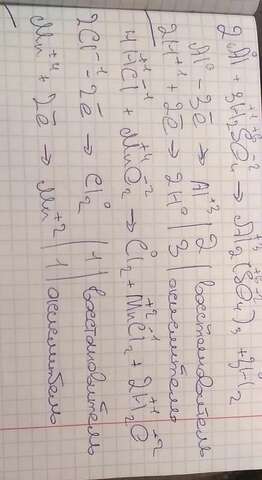 2Al⁰ + 3H₂⁺¹S⁺⁶O₄⁻² → Al₂⁺³(S⁺⁶O₄⁻²)₃ + 3H₂⁰
Al⁰ - 3ē → Al⁺³ | 2 | восстановитель
2H⁺¹ + 2ē → 2H⁰ | 3 | окислитель
4H⁺¹Cl⁻¹ + Mn⁺⁴O₂⁻² → Cl₂⁰ + Mn⁺²Cl₂⁻¹ + 2H₂⁺¹O⁻²
2Cl⁻¹ - 2ē → Cl₂⁰ | 1 | восстановитель
Mn⁺⁴ + 2ē → Mn⁺² | 1 | окислитель